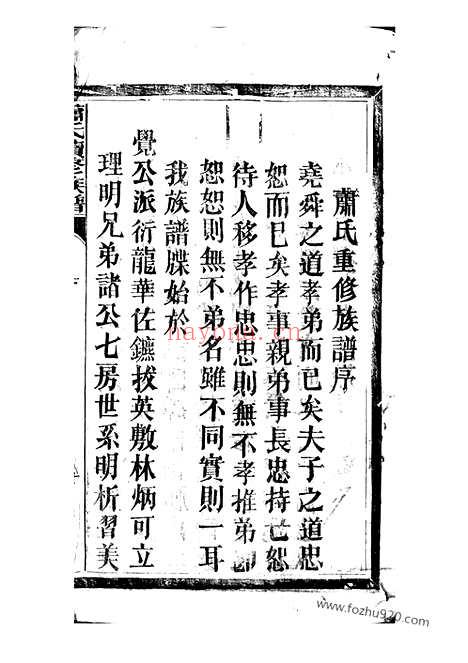 蕭氏重修族譜序
堯舜之道孝弟而已矣夫子之道忠
恕而已矣孝事親弟事長忠持己恕
待人移孝作忠忠則無不孝推弟即
恕恕則無不弟名雖不同實則一耳
我族譜牒始於
覺公派衍龍華佐鑣拔英敷林炳可立
理明兄弟諸公七房世系明析習美
蕭氏續修族譜
haypna.cn
www.fozhu920.com